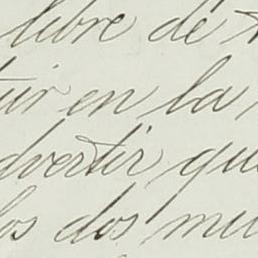 libre de
tir en la
dvertir que
los dos mu